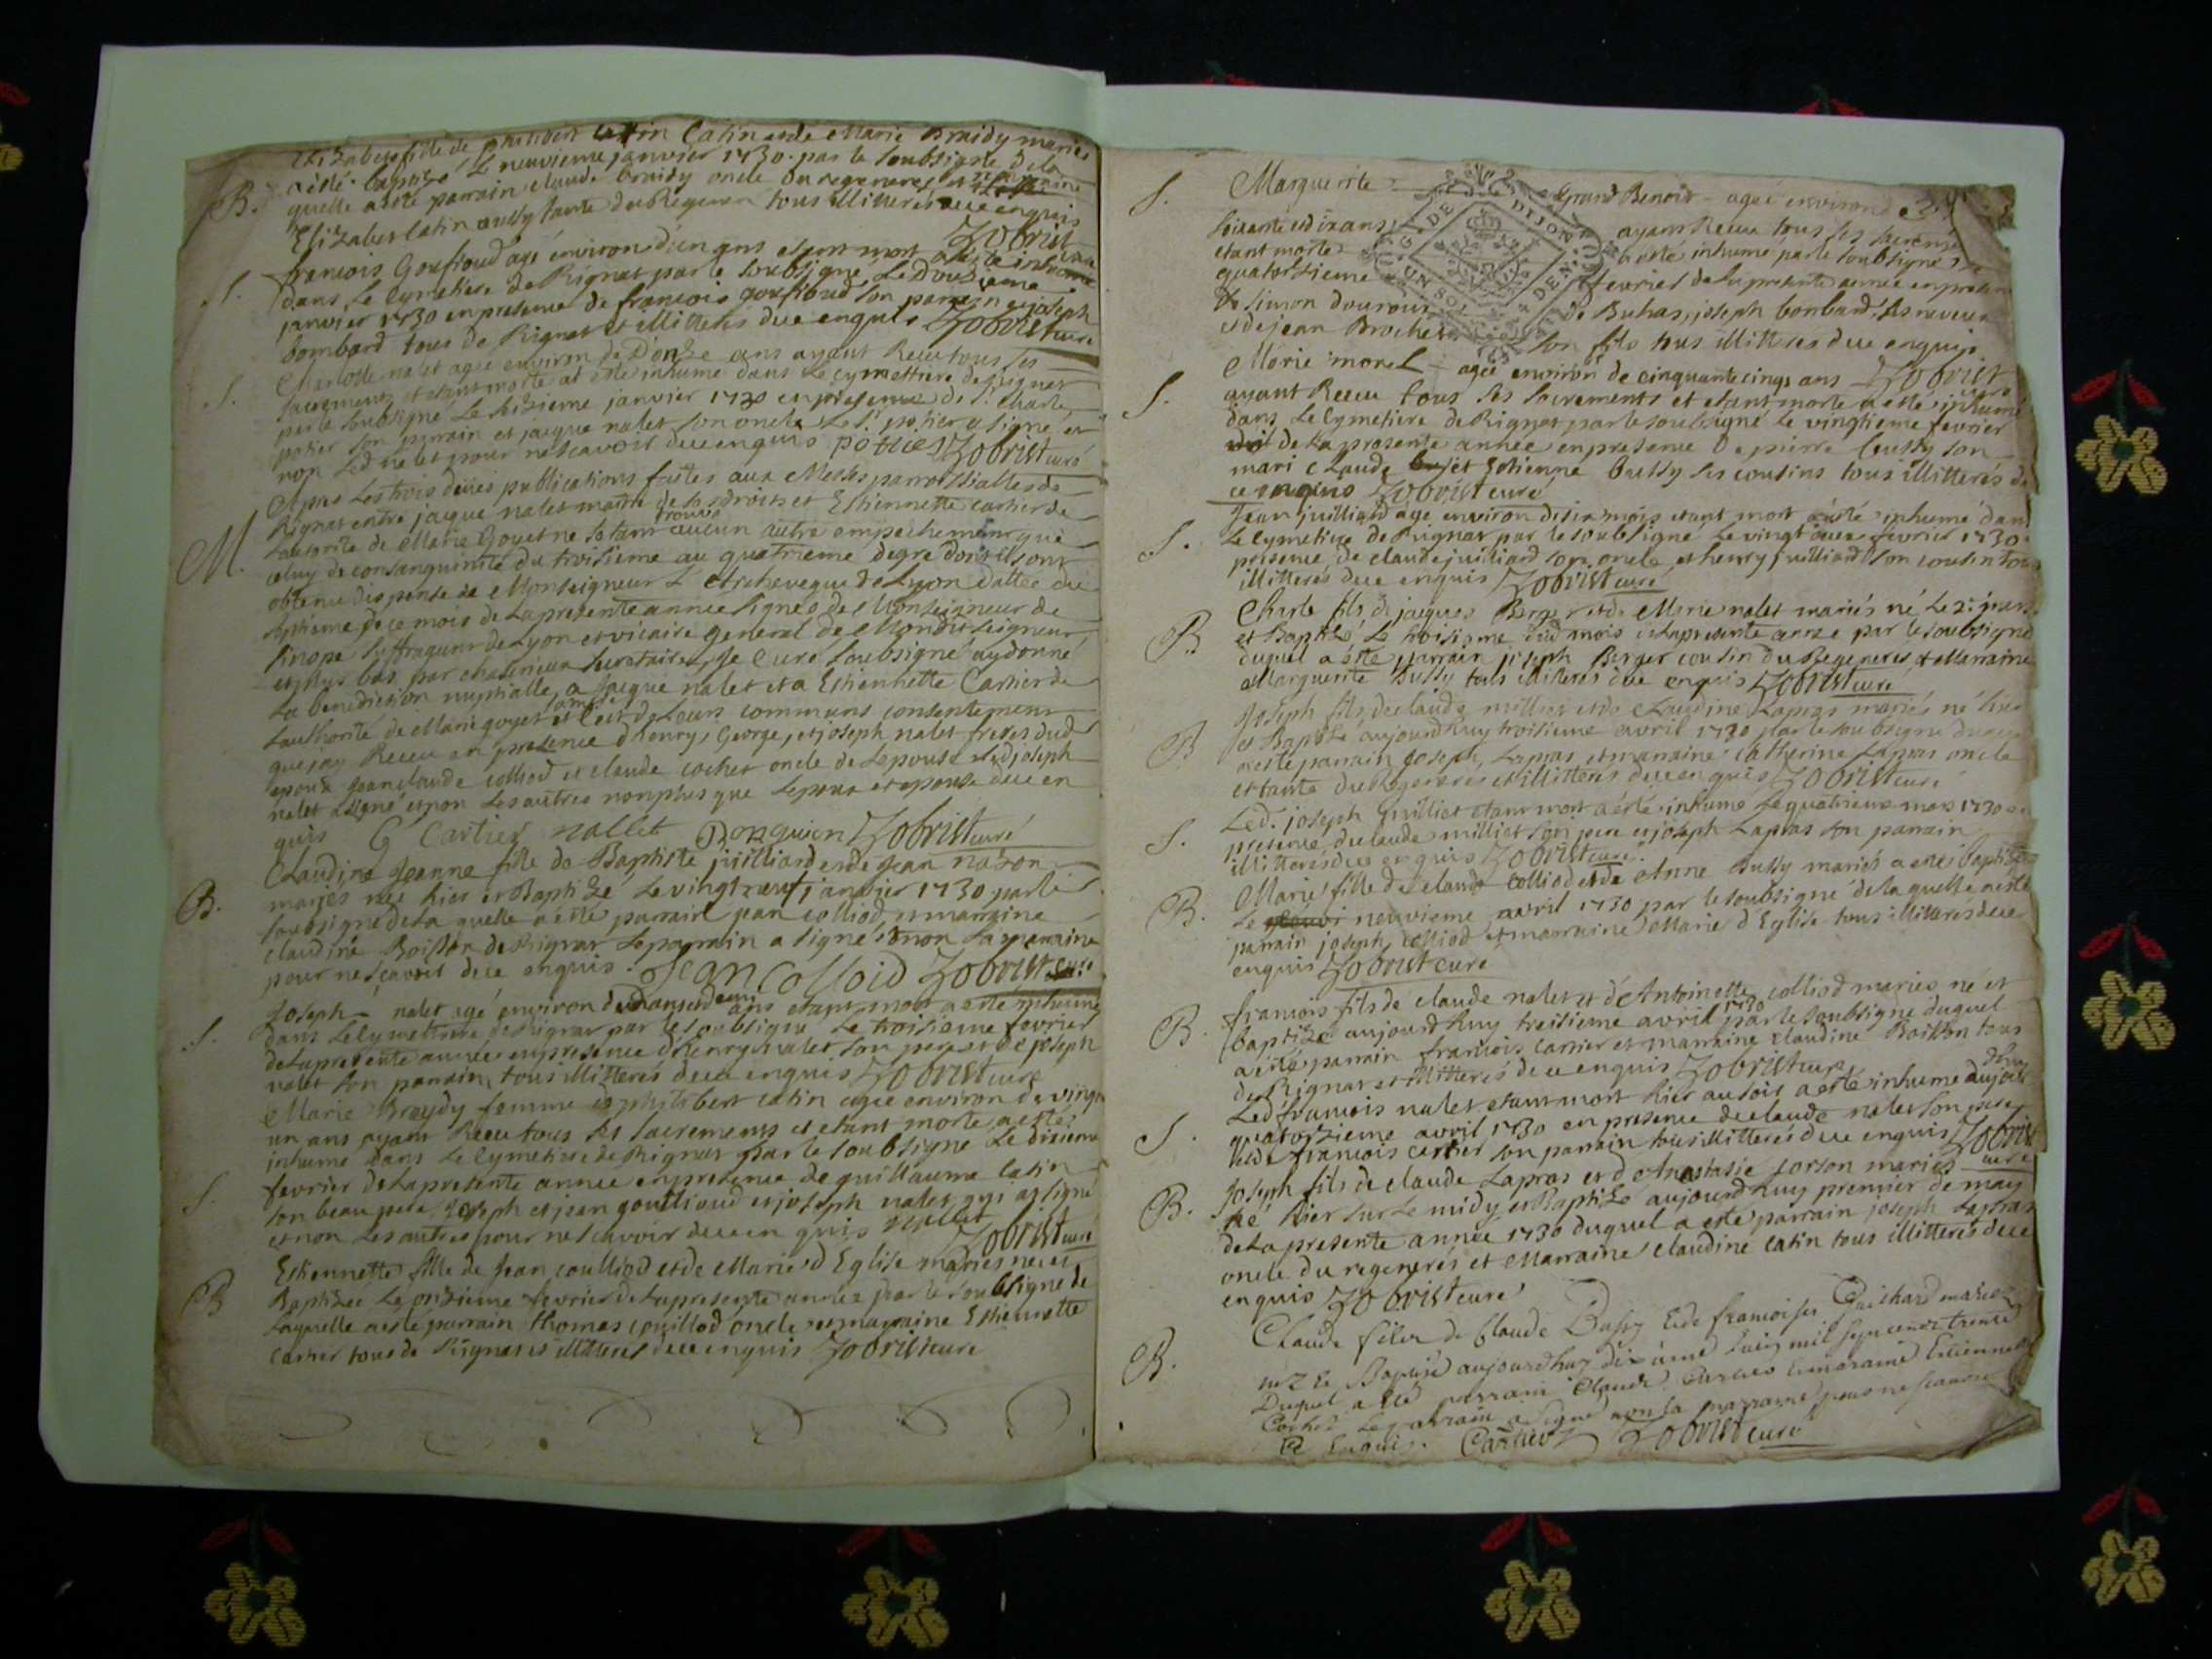 Elizabet fille de philibert Catin et de Marie Braidy mariés
B.
a esté baptizé Le neuvieme janvier 1730 par le soubsigné de la
quelle a esté parrain claude braidy oncle du regeneres et marraine
Elizabet Catin aussy tante du Regeneré tous illitterés de ce enquis
Zobrist curé
S.
francois Gouffoud agé environ d'un ans etant mort a esté inhumé
dans Le Cymetiere de Rignat par le soubsigné Le Dousieme
janvier 1730 en presence de francois gouffoud son parrain et joseph
bombard tous de Rignat et illitterés de ce enquis Zobrist curé
S.
Charlotte nalet agee environ de Donze ans ayant Receu tous ses
sacrements et etant morte at esté inhumé dans Le cymettiere de Rignat
par le soubsigné Le sizieme janvier 1730 en presence de Sr. Charle
potier son parrain et jacque nalet son oncle Le Sr. potier a signé et
non Led nalet pour ne scavoir de ce enquis potier Zobrist curé
M.
Apres Les trois publications faites aux Messes parroissialles de
Rignat entre jaque nalet maitre de ses droits et Estiennette cartier de
Lautorité de Marie Goyet ne setant trouvé aucun autre empechement que
celuy de consanguinité du troisieme au quatrieme degre dont ils ont
obtenu dispense de Monseigneur L'Archeveque de Lyon dattée du
septieme de ce mois de La presente année signée de Monseigneur de
Sinope suffragant de Lyon et vicaire general de Mondit seigneur,
et plus bas par chabrieux secretaire, Je Curé soubsigné ay donné
La benediction nuptialle, a Jacque nalet et a Estiennette Cartier de
Lauthorité de Marie goyet sa mere et c'est de Leurs communs consentement
que jay Receu en presence d'henry, George, et joseph nalet freres dud
epoux Jean claude colliod et claude cochet oncle de Lepouse Led joseph
nalet a signé et non Les autres non plus que Lepoux et epouse de ce en
quis G Cartier nallet Donguien Zobrist curé
B.
Claudine Jeanne fille de Baptiste juilliard et de Jean nason
mariés née hier et Baptizé Le vingt neuf janvier 1730 par le
soubsigné de La quelle a esté parrain jean colliod, et marraine
claudine Boisson de Rignat Le parrain a signé et non La marraine
pour ne scavoir de ce enquis. Jean Colloid Zobrist curé
S.
Joseph nalet agé environ de ans etant mort a esté inhumé
dans Le Cymettiere de Rignat par le soubsigné Le troisieme fevrier
de La presente année en presence d'henry nalet son pere et de joseph
nalet son parrain, tous illitterés de ce enquis Zobrist curé
S.
Marie Braydy femme de philibert catin agée environ de vingt
un ans ayant Receu tous ses sacrements et etant morte a esté
inhumé dans Le Cymetiere de Rignat par le soubsigné Le dixieme
fevrier de La presente année en presence de guillaume Catin
son beau pere, joseph et jean goufioud et joseph nalet qui a signé
et non Les autres pour ne scavoir de ce en quis nallet
Zobrist curé
B
Estiennette fille de Jean coulliod et de Marie d'Eglise mariés née et
Baptizée Le onzieme fevrier de La presente année par le soubsigné de
Laquelle a esté parrain thomas couilliod oncle et marraine Estiennette
cartier tous de Rignat et illitterés de ce enquis Zobrist curé
S.
Marguerite Grand Benoit agée environ de
soixante et dix ans ayant Receu tous ses sacremens
etant morte a esté inhumé par le soubsigné Le
quatorsieme fevrier de La presente année en presence
de simon douroux de Buhas, joseph bombard, ses neveux
et de jean Brochet son fils tous illitterés de ce enquis
Zobrist curé
G. DE DIJON
S.
Marie morel agée environ de cinquante cinq ans
ayant Receu tous ses sacrements et etant morte a esté inhumé
dans Le Cymetiere de Rignat par le soubsigné Le vingtieme fevrier
de La presente année en presence de pierre bussy son
mari claude et Estienne bussy ses cousins tous illitterés de
ce enquis Zobrist curé
S.
Jean juilliard agé environ de six mois etant mort a esté inhumé dans
Le Cymetiere de Rignat par le soubsigné Le vingt fevrier 1730
presence de claude juilliard son oncle et henry juilliard son cousin tous
illitterés de ce enquis Zobrist curé
B
Charle fils de jacques Berger et de Marie nalet mariés né Le
et Baptizé Le troisieme dud mois de La presente année par le soubsigné
duquel a esté parrain joseph Berger cousin du Regeneres et Marraine
Marguerite Bussy tous illitterés de ce enquis Zobrist curé
B
Joseph fils de claude milliet et de Claudine Lapras mariés né hier
et Baptizé aujourd'huy troisieme avril 1730 par le soubsigné duquel
a esté parrain joseph Lapras et marraine catherine Lapras oncle
et tante du Regeneres et illitterés de ce enquis Zobrist curé
S.
Led. joseph milliet etant mort a esté inhumé Le quatrieme mars 1730 en
presence de claude milliet son pere et joseph Lapras son parrain
illitterés de ce enquis Zobrist curé
B.
Marie fille de claude colliod et de Anne Bussy mariés a esté baptizée
Le neuvieme avril 1730 par le soubsigné de la quelle a esté
parrain joseph colliod et marraine Marie d'Eglise tous illitterés de ce
enquis Zobrist curé
B.
francois fils de claude nalet et d'Antoinette colliod mariés né et
baptizé aujourd'huy treisieme avril 1730 par le soubsigné duquel
a esté parrain francois cartier et marraine claudine Boisson tous
de Rignat et illitterés de ce enquis Zobrist curé
S.
Led francois nalet etant mort hier au soir a esté inhumé aujourd'huy
quatorzieme avril 1730 en presence de claude nalet son pere
et de francois cartier son parrain tous illitterés de ce enquis Zobrist
curé
B.
Joseph fils de claude Lapras et d'Anastasie sorson mariés
né hier sur Le midy et Baptizé aujourd'huy premier de may
de La presente année 1730 duquel a esté parrain joseph Lapras
oncle du regenerés et Marraine claudine catin tous illitterés de ce
enquis Zobrist curé
B.
Claude filex de Claude Bussy Et de francoise Guichard mariez
nez Et Baptisé aujourdhuy dixieme Juin mil sept cent trente
Duquel a Eté parrain Claude Cartier Et maraine Etiennette
Cochet Le parrain a signé non La marraine pour ne scavoir
Ce Enquis. Cartier Zobrist curé